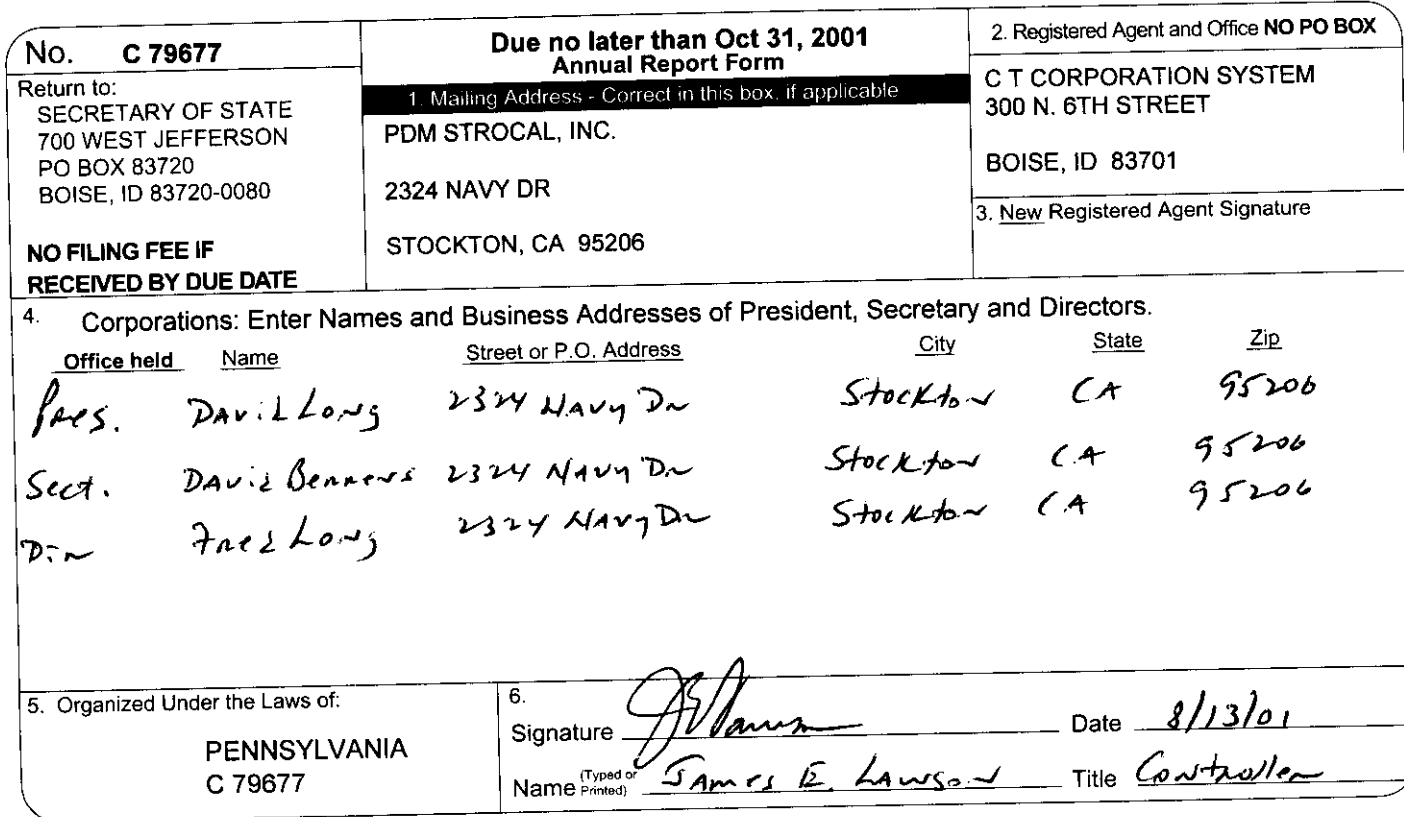 No. C 79677
Return to:
SECRETARY OF STATE
700 WEST JEFFERSON
PO BOX 83720
BOISE, ID 83720-0080
NO FILING FEE IF
RECEIVED BY DUE DATE
Due no later than Oct 31, 2001
Annual Report Form
1. Mailing Address - Correct in this box, if applicable
PDM STROCAL, INC.
2324 NAVY DR
STOCKTON, CA 95206
2. Registered Agent and Office NO PO BOX
C T CORPORATION SYSTEM
300 N. 6TH STREET
BOISE, ID 83701
3. New Registered Agent Signature
4. Corporations: Enter Names and Business Addresses of President, Secretary and Directors.
Office held Name Street or P.O. Address City State Zip
Pres. David Long 2324 Navy Dr Stockton CA 95206
Sect. David Benners 2324 Navy Dr Stockton CA 95206
Dir Fred Long 2324 Navy Dr Stockton CA 95206
5. Organized Under the Laws of:
PENNSYLVANIA
C 79677
6.
Signature Date 8/13/01
Name (Typed or Printed) James E. Lawson Title Controller